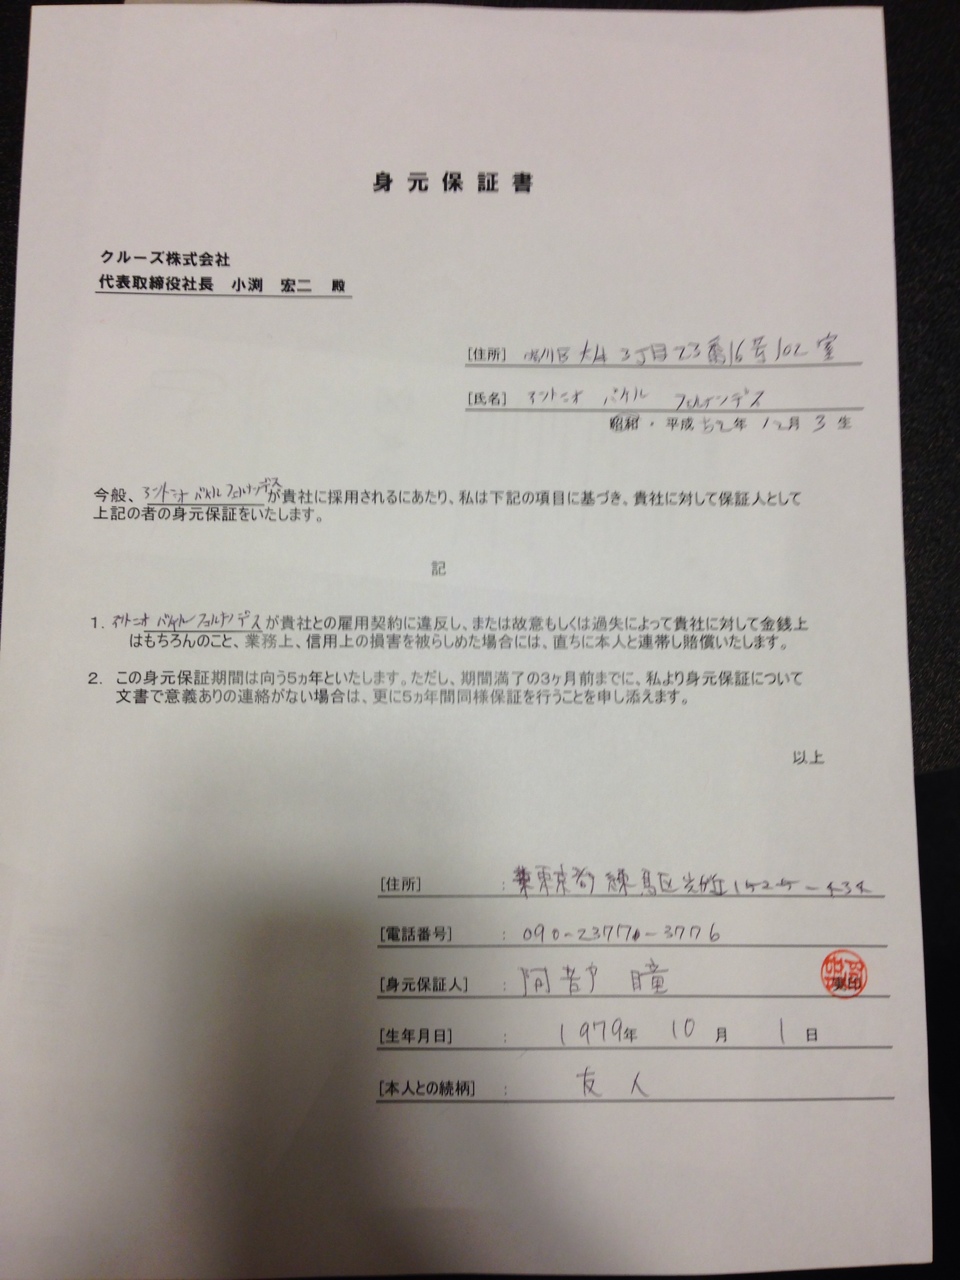 身元保証書
クルーズ株式会社
代表取締役社長 小渕 宏二 殿
[住所] 3丁目23番16号102室
[氏名] アントニオ バケル フェルナンデス
昭和・平成 年 12月 3 生
今般、アントニオ バケル フェルナンデスが貴社に採用されるにあたり、私は下記の項目に基づき、貴社に対して保証人として
上記の者の身元保証をいたします。
記
1. アントニオ バケル フェルナンデスが貴社との雇用契約に違反し、または故意もしくは過失によって貴社に対して金銭上
はもちろんのこと、業務上、信用上の損害を被らしめた場合には、直ちに本人と連帯し賠償いたします。
2. この身元保証期間は向う5ヵ年といたします。ただし、期間満了の3ヶ月前までに、私より身元保証について
文書で意義ありの連絡がない場合は、更に5ヵ年間同様保証を行うことを申し添えます。
以上
[住所] : 東京都練馬区
[電話番号] : 090-23770-3776
[身元保証人] : 阿部 瞳 実印
[生年月日] : 1979年 10月 1日
[本人との続柄] : 友人